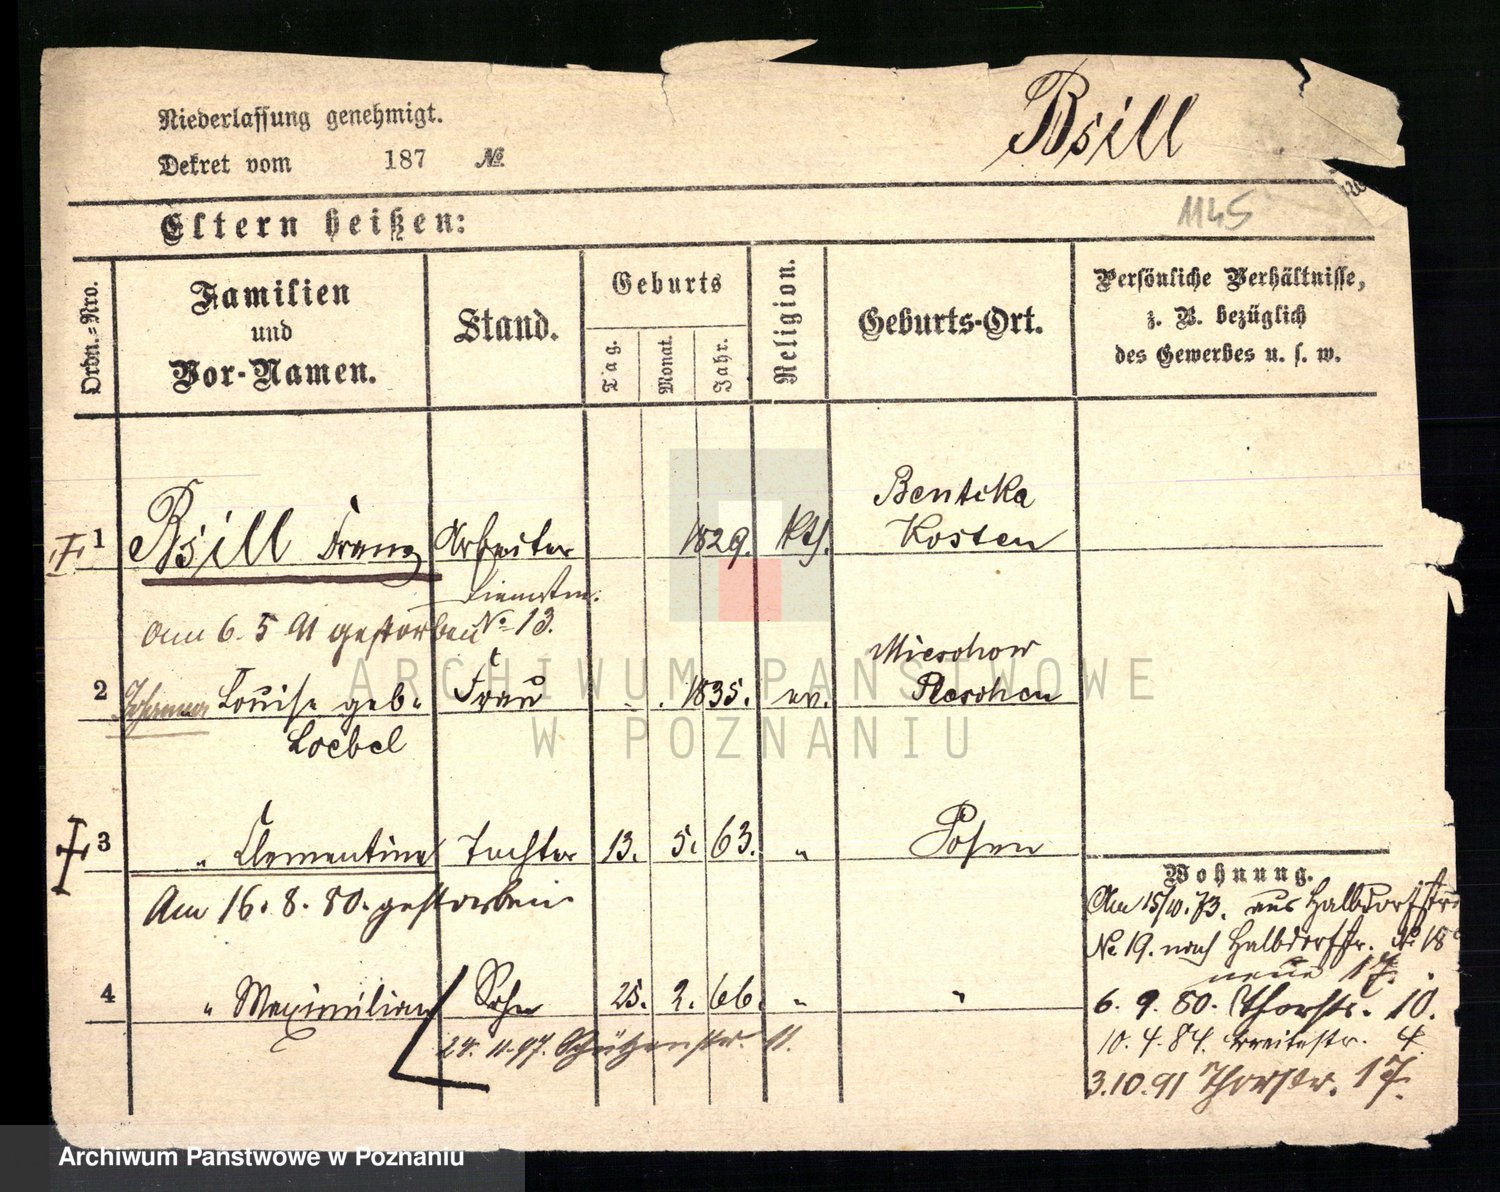 Niederlassung genehmigt.
Dekret vom 187 №.
Bsill
1145
Eltern heißen:
Ordn.=Nro.
Familien
und
Vor-Namen.
Stand.
Geburts
Tag.
Monat.
Jahr.
Religion.
Geburts-Ort.
Persönliche Verhältnisse,
z. B. bezüglich
des Gewerbes u. s. w.
1 Bsill Franz Arbeiter 1829. kth. Bentska
Kosten
Dienstm.
№ 13.
Am 6. 5 91 gestorben
2 Louise geb. Frau 1835. ev. Mieschow
Pleschen
Loebel
3 " Clementine Tochter 13. 5. 63. " Posen
Am 16. 8. 80. gestorben
4 " Maximilian Sohn 25. 2. 66. " "
24. 11. 97. Schützenstr. 11.
Wohnung.
Am 15/10. 73. aus Halbdorfstr.
№ 19. nach Halbdorfstr. № 18
neue 17.
6. 9. 80. Thorstr. 10.
10. 4. 84. Breitestr. 4
3.10.91 Thorstr. 17.
ARCHIWUM PAŃSTWOWE
W POZNANIU
Archiwum Państwowe w Poznaniu